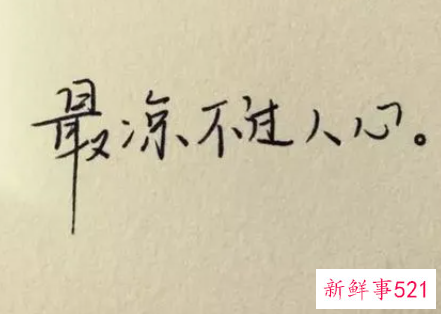 最凉不过人心。
新鲜事521